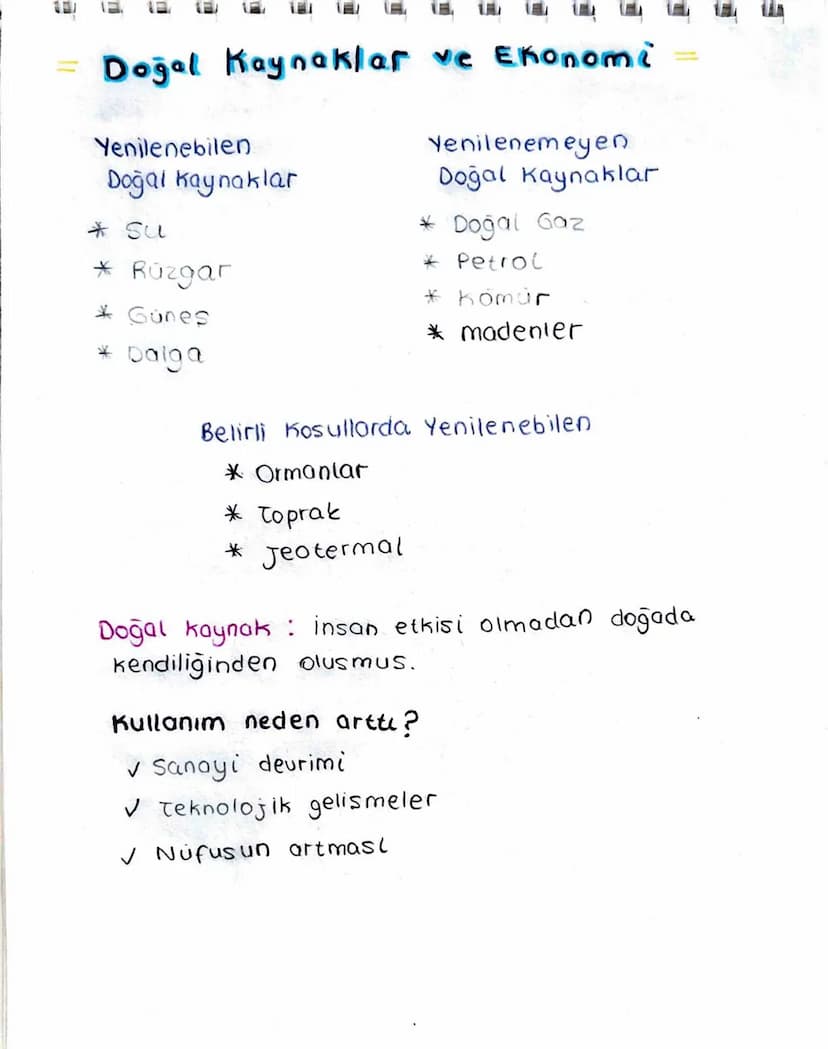 = Doğal Kaynaklar ve Ekonomi =
Yenilenebilen
Doğal Kaynaklar
* Su
* Rüzgar
* Güneş
* Dalga
Yenilenemeyen
Doğal Kaynaklar
* Doğal Gaz
* Petrol
* Kömür
* madenler
Belirli Kosullarda Yenilenebilen
* Ormanlar
* Toprak
* Jeotermal
Doğal kaynak : insan etkisi olmadan doğada
kendiliğinden olusmus.
Kullanım neden arttı?
✓ Sanayi devrimi
✓ Teknolojik gelismeler
✓ Nüfusun artması